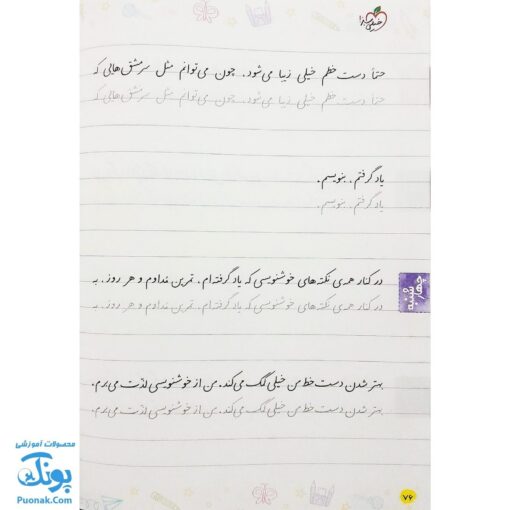 خیلی سبز
حتماً دست خطم خیلی زیبا می‌شود. چون می‌توانم مثل سرمشق‌هایی که
حتماً دست خطم خیلی زیبا می‌شود. چون می‌توانم مثل سرمشق‌هایی که
یاد گرفتم، بنویسم.
یاد گرفتم، بنویسم.
در کنار همه‌ی نکته‌های خوشنویسی که یاد گرفته‌ام، تمرین مداوم و هر روز، به
در کنار همه‌ی نکته‌های خوشنویسی که یاد گرفته‌ام، تمرین مداوم و هر روز، به
چهارشنبه
بهتر شدن دست خط من خیلی کمک می‌کند. من از خوشنویسی لذت می‌برم.
بهتر شدن دست خط من خیلی کمک می‌کند. من از خوشنویسی لذت می‌برم.
محصولات آموزشی
پونک
Puonak.Com
۷۶